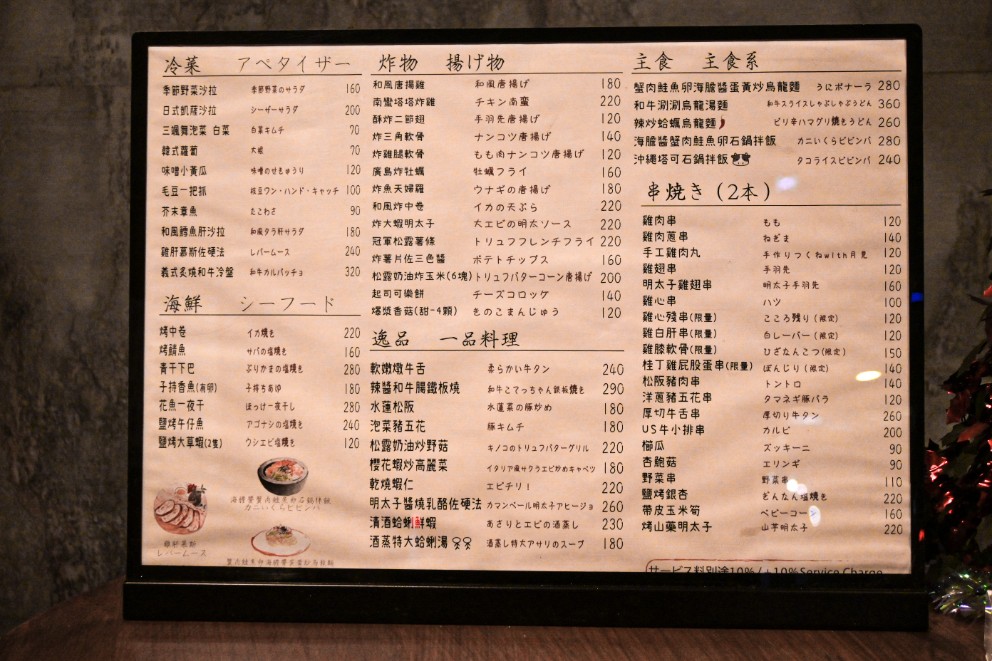 冷菜 アペタイザー
季節野菜沙拉 季節野菜のサラダ 160
日式凱薩沙拉 シーザーサラダ 200
三颯舞泡菜 白菜 白菜キムチ 70
韓式蘿蔔 大根 70
味噌小黃瓜 味噌のせきゅうり 120
毛豆一把抓 枝豆ワン・ハンド・キャッチ 100
芥末章魚 たこわさ 90
和風鱈魚肝沙拉 和風タラ肝サラダ 180
雞肝慕斯佐硬法 レバームース 240
義式炙燒和牛冷盤 和牛カルパッチョ 320
海鮮 シーフード
烤中卷 イカ焼き 220
烤鯖魚 サバの塩焼き 160
青干下巴 ぶりかまの塩焼き 280
子持香魚(有卵) 子持ちあゆ 180
花魚一夜干 ほっけ一夜干し 280
鹽烤牛仔魚 アゴナシの塩焼き 240
鹽烤大草蝦(2隻) ウシエビ塩焼き 120
海膽醬蟹肉鮭魚卵石鍋拌飯
カニいくらビビンバ
雞肝慕斯
レバームース
炸物 揚げ物
和風唐揚雞 和風唐揚げ 180
南蠻塔塔炸雞 チキン南蛮 220
酥炸二節翅 手羽先唐揚げ 120
炸三角軟骨 ナンコツ唐揚げ 140
炸雞腿軟骨 もも肉ナンコツ唐揚げ 120
廣島炸牡蠣 牡蠣フライ 160
炸魚天婦羅 ウナギの唐揚げ 180
和風炸中卷 イカの天ぷら 220
炸大蝦明太子 大エビの明太ソース 220
冠軍松露薯條 トリュフフレンチフライ 220
炸薯片佐三色醬 ポテトチップス 160
松露奶油炸玉米(6塊) トリュフバターコーン唐揚げ 200
起司可樂餅 チーズコロッケ 140
爆漿香菇(甜-4顆) きのこまんじゅう 120
逸品 一品料理
軟嫩燉牛舌 柔らかい牛タン 240
辣醬和牛腸鐵板燒 和牛こてっちゃん鉄板焼き 290
水蓮松阪 水蓮菜の豚炒め 180
泡菜豬五花 豚キムチ 180
松露奶油炒野菇 キノコのトリュフバターグリル 220
櫻花蝦炒高麗菜 イタリア風サクラエビ炒めキャベツ 180
乾燒蝦仁 エビチリ! 220
明太子醬燒乳酪佐硬法 カマンベール明太子アヒージョ 260
清酒蛤蜊鮮蝦 あさりとエビの酒蒸し 230
酒蒸特大蛤蜊湯 酒蒸し特大アサリのスープ 180
主食 主食系
蟹肉鮭魚卵海膽醬蛋黃炒烏龍麵 うにボナーラ 280
和牛涮涮烏龍湯麵 和牛スライスしゃぶしゃぶうどん 360
辣炒蛤蠣烏龍麵 ピリ辛ハマグリ焼きうどん 260
海膽醬蟹肉鮭魚卵石鍋拌飯 カニいくらビビンバ 280
沖繩塔可石鍋拌飯 タコライスビビンバ 240
串焼き(2本)
雞肉串 もも 120
雞肉蔥串 ねぎま 140
手工雞肉丸 手作りつくねwith月見 120
雞翅串 手羽先 120
明太子雞翅串 明太子手羽先 160
雞心串 ハツ 100
雞心殘串(限量) こころ残り(限定) 120
雞白肝串(限量) 白レーバー(限定) 120
雞膝軟骨(限量) ひざなんこつ(限定) 150
桂丁雞屁股蛋串(限量) ぼんじり(限定) 140
松阪豬肉串 トントロ 140
洋蔥豬五花串 タマネギ豚バラ 120
厚切牛舌串 厚切り牛タン 260
US牛小排串 カルビ 200
櫛瓜 ズッキーニ 90
杏鮑菇 エリンギ 90
野菜串 野菜串 110
鹽烤銀杏 ぎんなん塩焼き 220
帶皮玉米筍 ベビーコーン 150
烤山藥明太子 山芋明太子 220
サービス料別途10%/+10%Service Charge